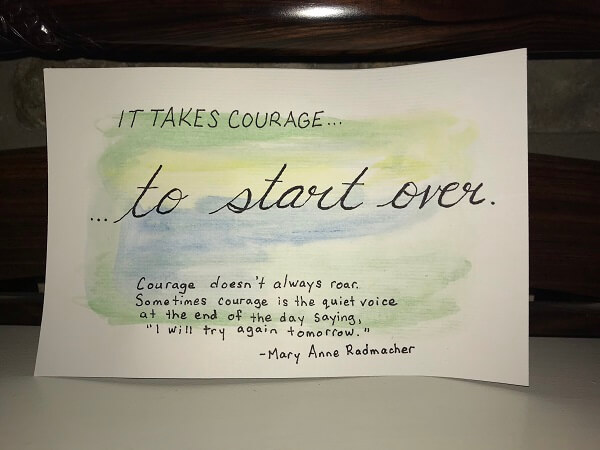 IT TAKES COURAGE...
...to start over.
Courage doesn't always roar.
Sometimes courage is the quiet voice
at the end of the day saying,
"I will try again tomorrow."
-Mary Anne Radmacher